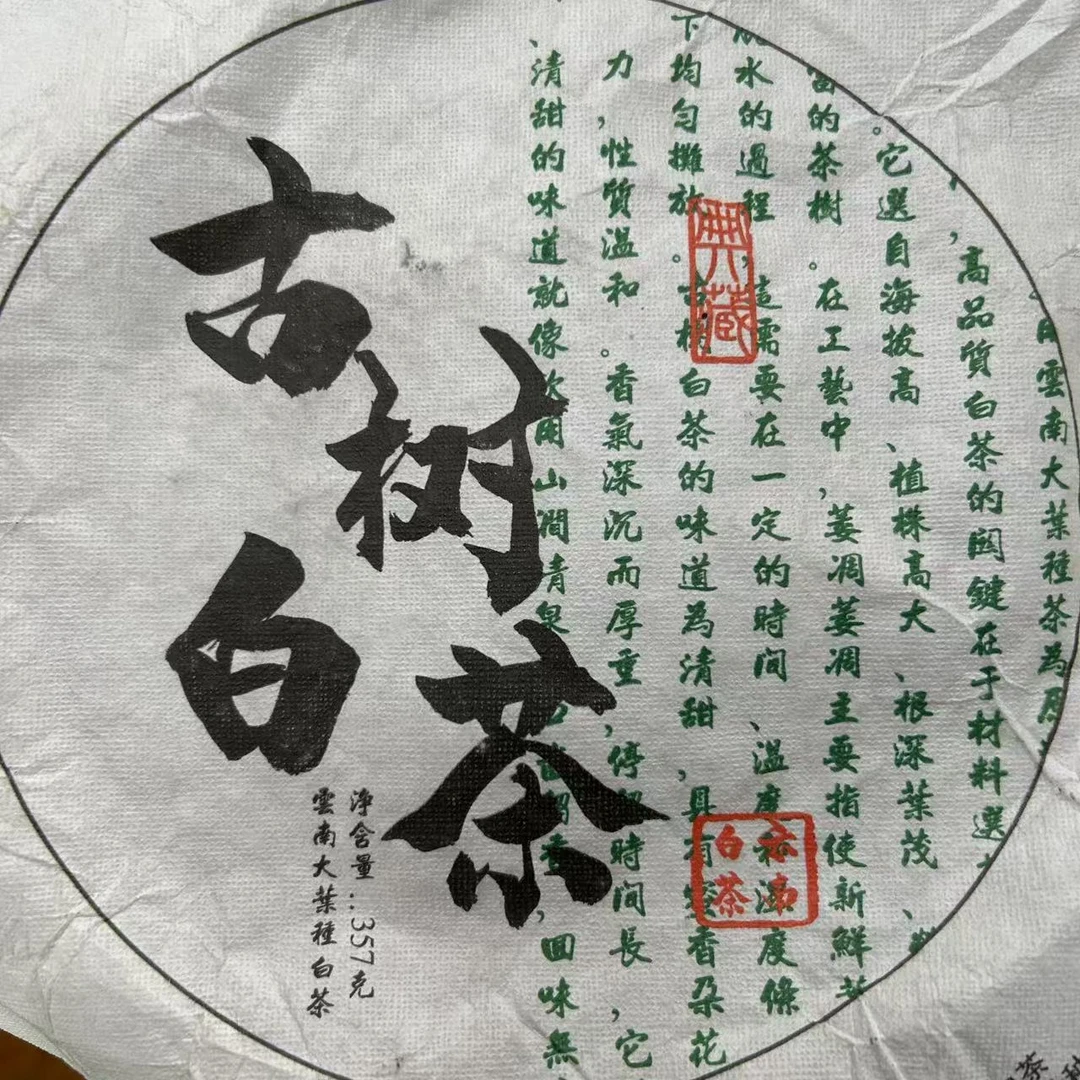 雲南大葉種茶為
，高品質白茶的関鍵在于材料選
。它選自海拔高、植株高大、根深葉茂、
的茶樹。在工藝中，萎凋萎凋主要指使新鮮
水的過程，這需要在一定的時间、温度和濕度條
下均勻攤放。古樹白茶的味道為清甜，具有蜜香朶花
力，性質温和。香氣深沉而厚重，停留時间長，它
、清甜的味道就像飲用山澗青泉，回味無
典藏
云南
白茶
古树
白茶
净含量：357克
雲南大葉種白茶